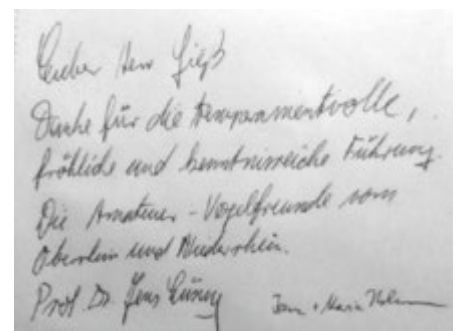 Lieber Herr
Danke für die temperamentvolle,
fröhliche und kenntnisreiche Führung.
Die Amateur-Vogelfreunde vom
Oberrhein und Niederrhein.
Prof. Dr. Jens + Maria